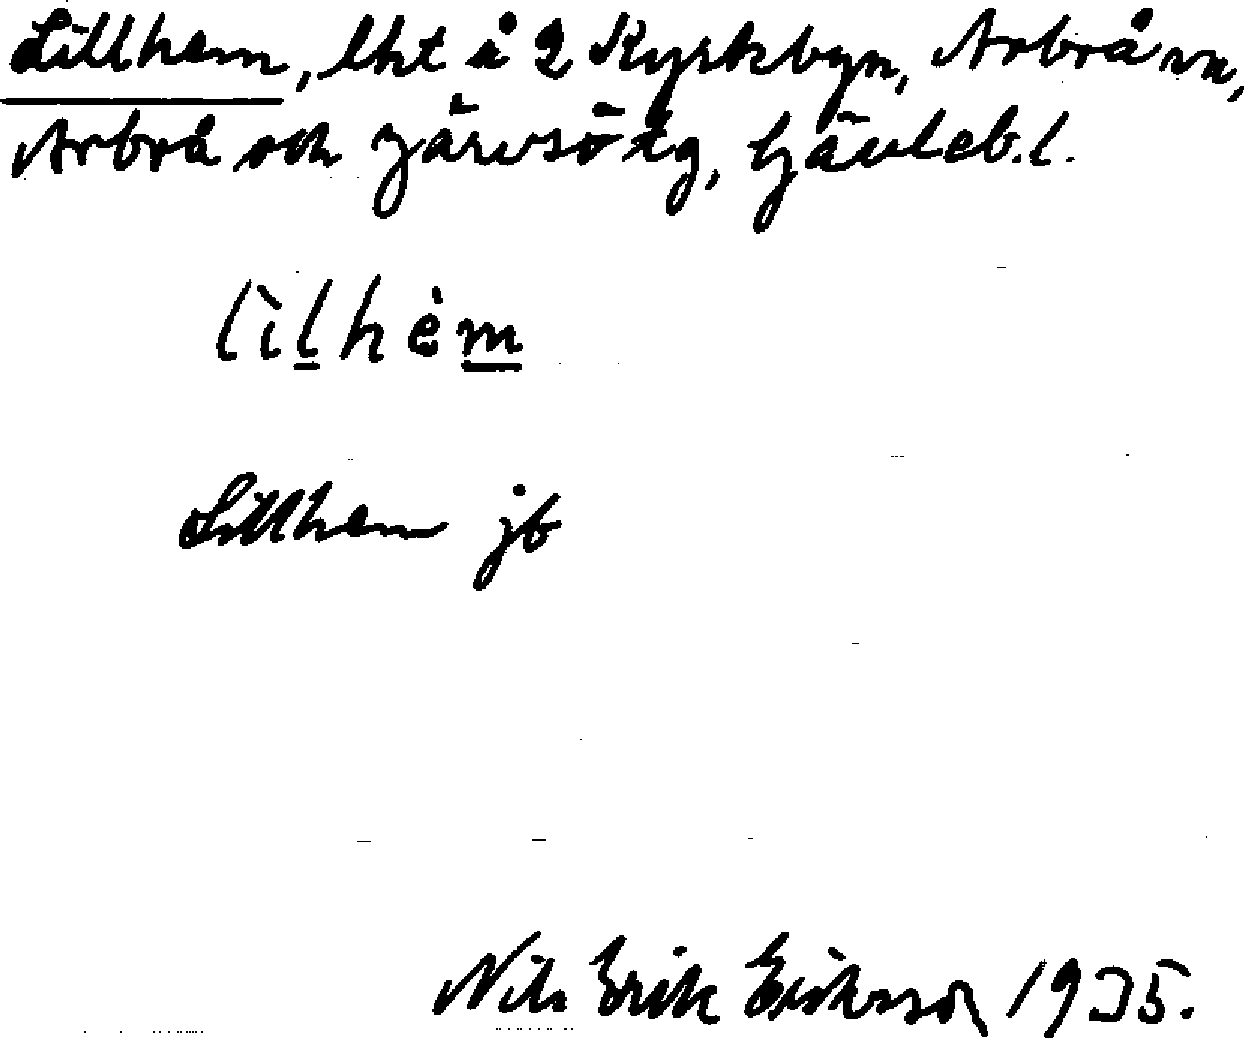 Lillhem, lht å 2 Kyrkbyn, Arbrå sn,
Arbrå och Järvsö tg, Gävleb. l.
lìlhèm
Lillhem jb
Nils Erik Eriksson 1935.